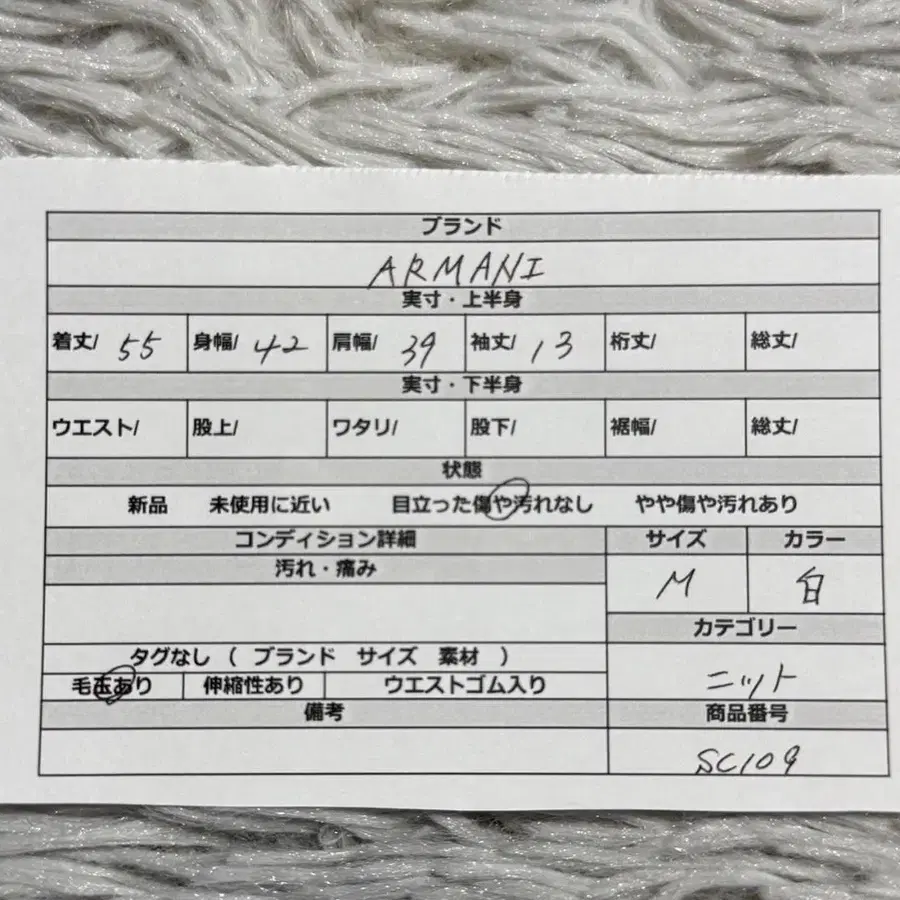 ブランド
ARMANI
実寸・上半身
着丈/ 55 身幅/ 42 肩幅/ 39 袖丈/ 13 裄丈/ 総丈/
実寸・下半身
ウエスト/ 股上/ ワタリ/ 股下/ 裾幅/ 総丈/
状態
新品 未使用に近い 目立った傷や汚れなし やや傷や汚れあり
コンディション詳細 サイズ カラー
汚れ・痛み
M 白
カテゴリー
タグなし ( ブランド サイズ 素材 )
ニット
毛玉あり 伸縮性あり ウエストゴム入り
備考 商品番号
SC109